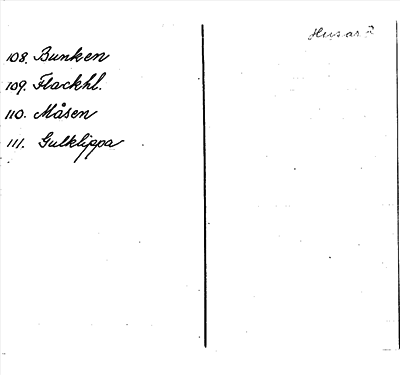 108. Bunken
109. Flackhl.
110. Måsen
111. Gulklippa
Husarö